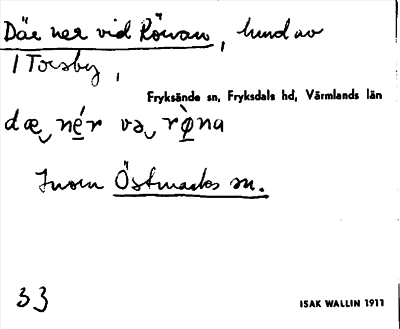 Där ner vid Rönan, hund av
1 Torsby,
Fryksände sn, Fryksdals hd, Värmlands län
dæ‿ né̱r və‿ rø̱̀na
Inom Östmarks sn.
33
ISAK WALLIN 1911